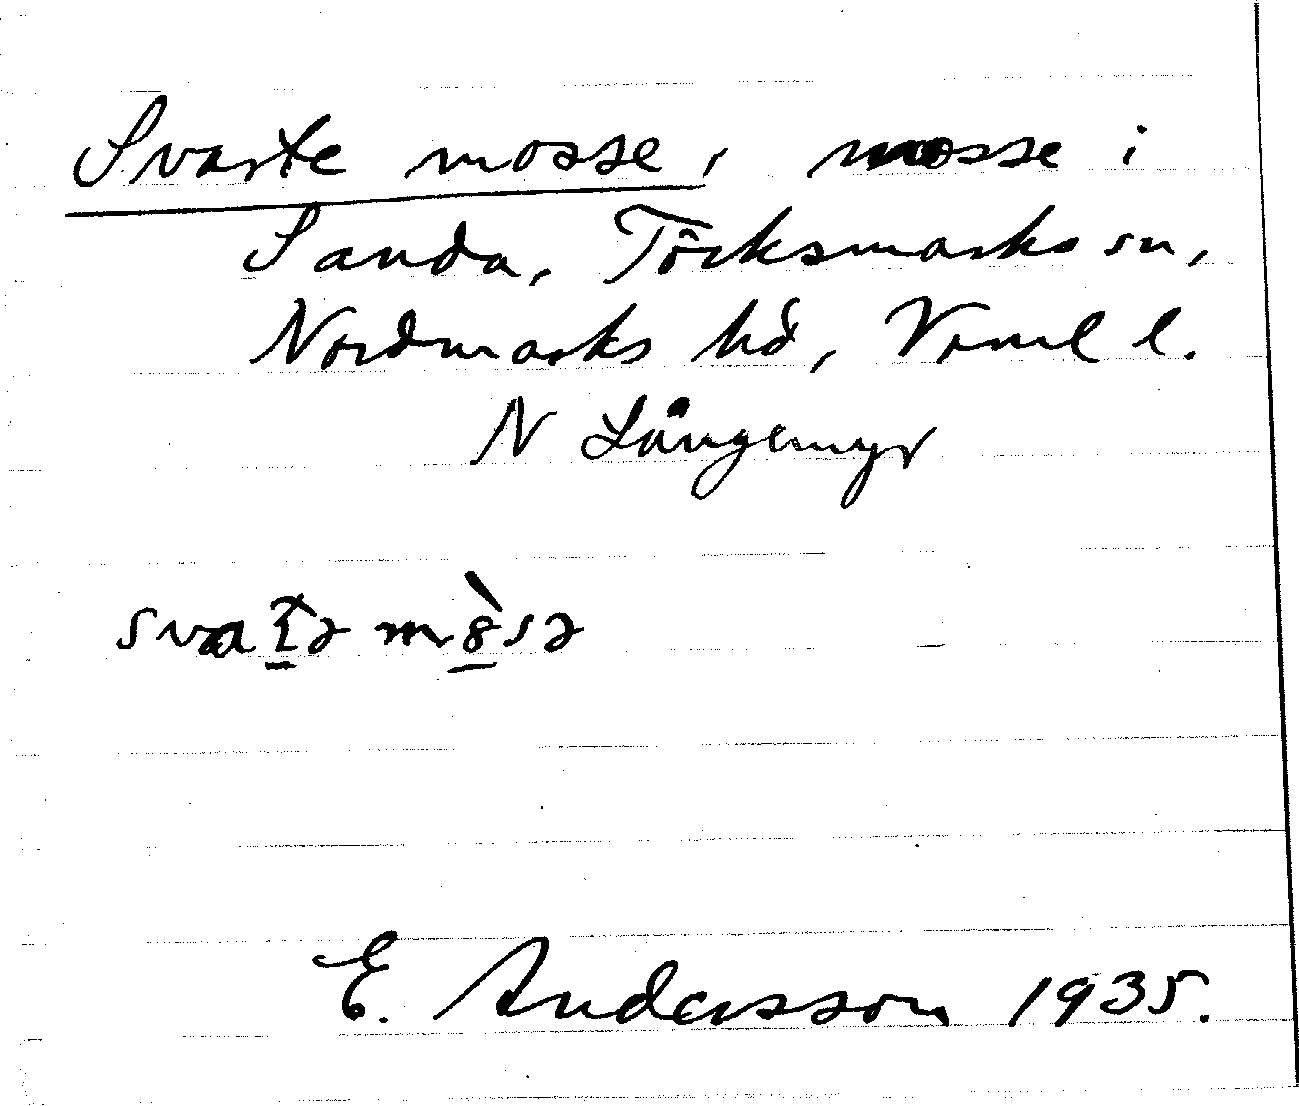 Svarte mosse, mosse i
Sanda, Töcksmarks sn,
Nordmarks hd, Vrml l.
N Långemyr
E. Andersson 1935.